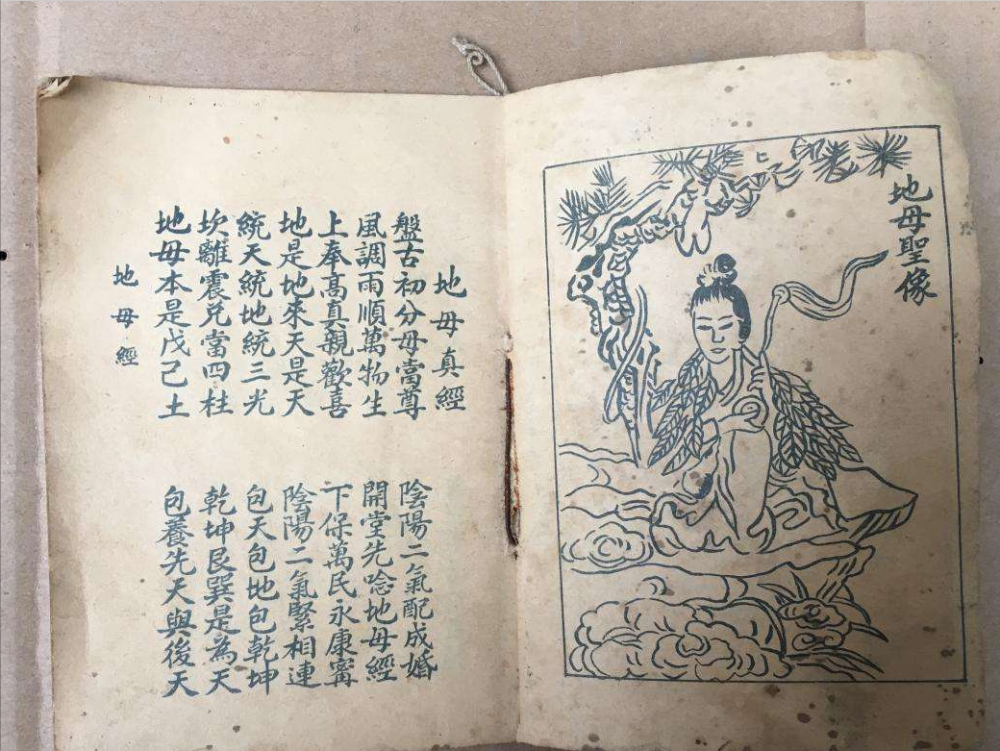 地母聖像
地母真經
盤古初分母當尊　陰陽二氣配成婚
風調雨順萬物生　開堂先唸地母經
上奉高真親歡喜　下保萬民永康寗
地是地來天是天　陰陽二氣緊相連
統天統地統三光　包天包地包乾坤
坎離震兌當四柱　乾坤艮巽是為天
地母本是戊己土　包養先天與後天
地母經